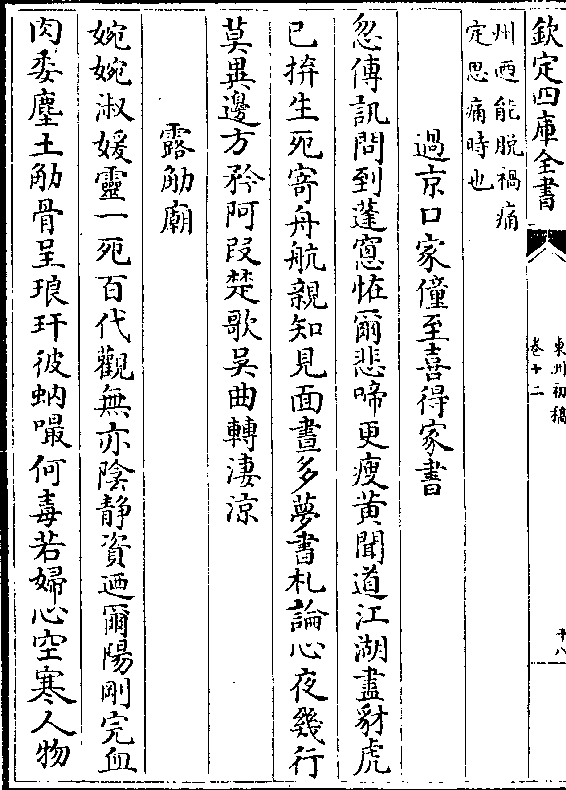 欽定四庫全書
東州初稿
卷十二
十八
州迺能脫禍痛
定思痛時也
過京口家僮至喜得家書
忽傳訊問到蓬窻恠爾悲啼更瘦黄聞道江湖盡豺虎
已拚生死寄舟航親知見面晝多夢書札論心夜幾行
莫異邊方矜阿段楚歌吳曲轉淒涼
露筋廟
婉婉淑媛靈一死百代觀無亦陰静資迺爾陽剛完血
肉委塵土觔骨呈琅玕彼蚋嘬何毒若婦心空寒人物